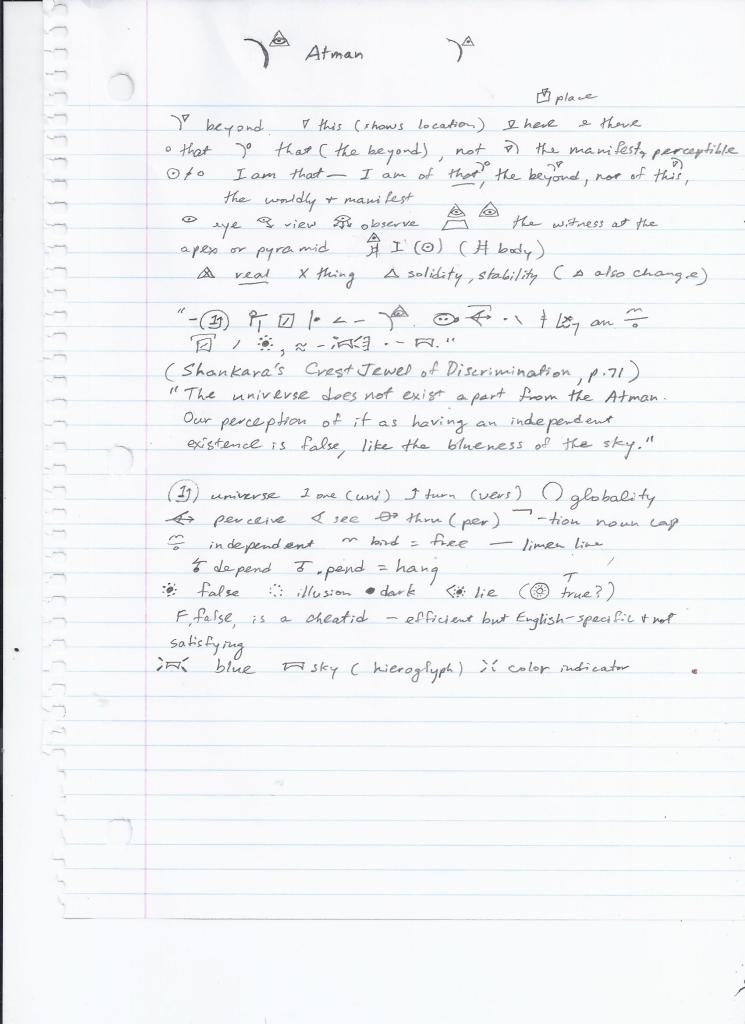 Atman
place
beyond this (shows location) here there
that that (the beyond), not the manifest, perceptible
I am that — I am of that, the beyond, not of this,
the worldly + manifest
eye view observe the witness at the
apex or pyramid I (⊙) (# body)
real X thing △ solidity, stability (△ also change)
(Shankara's Crest Jewel of Discrimination, p.71)
"The universe does not exist apart from the Atman.
Our perception of it as having an independent
existence is false, like the blueness of the sky."
universe 1 one (uni) turn (vers) ◯ globality
perceive see thru (per) -tion noun cap
independent ~ bird = free — limen line
depend .pend = hang
false illusion dark lie ( true?)
F, false, is a cheatid — efficient but English-specific + not
satisfying
blue sky (hieroglyph) color indicator